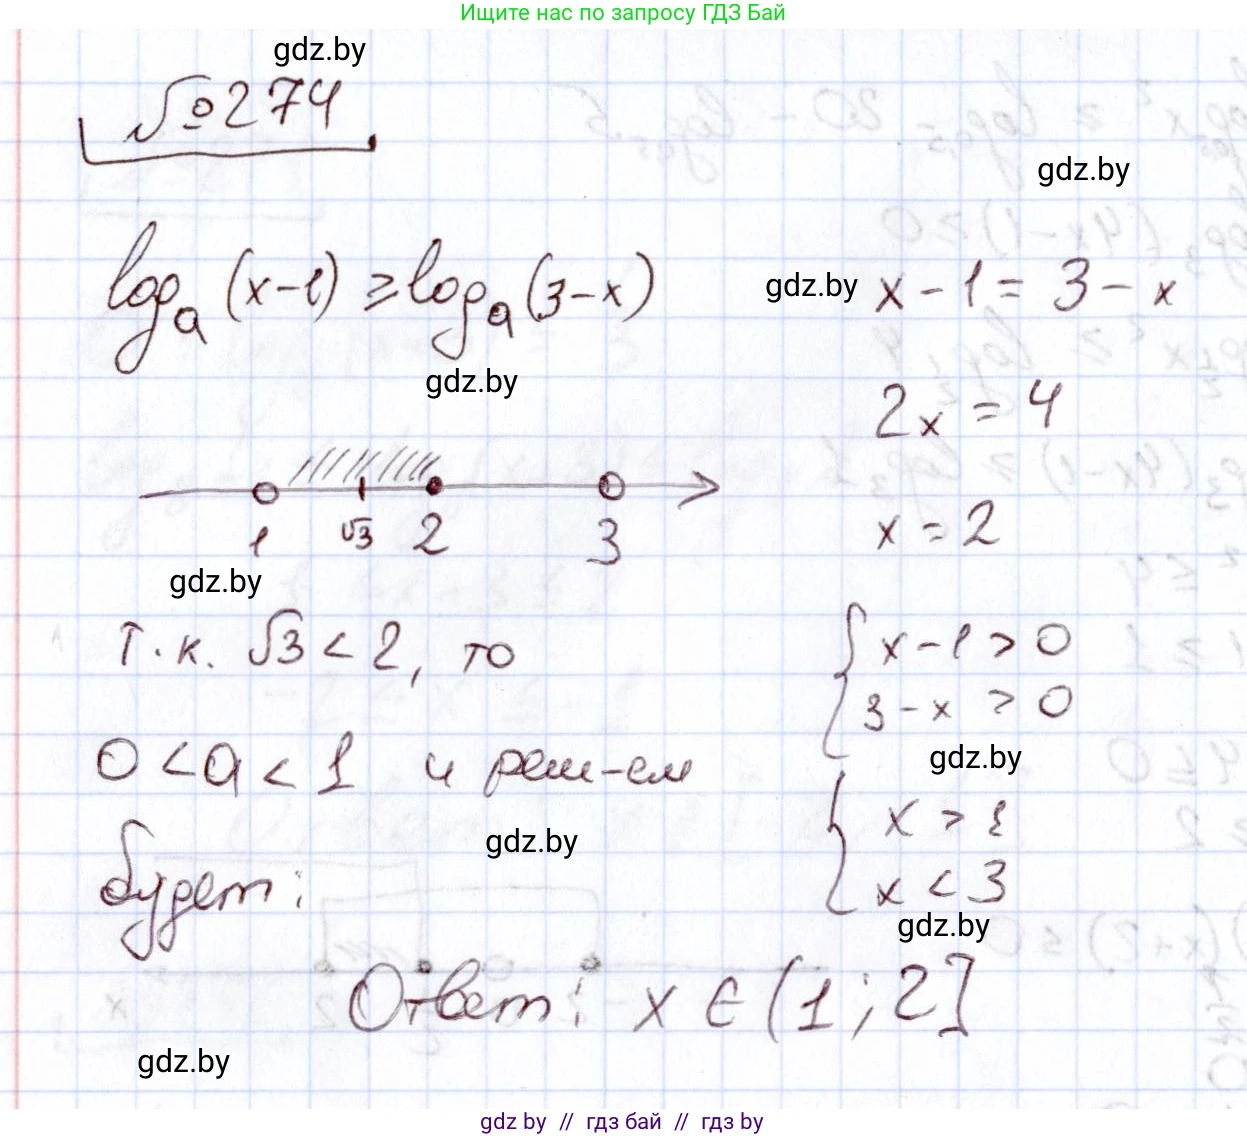 Ищите нас по запросу ГДЗ Бай
gdz.by
№274
gdz.by
log_a (x-1) ≥ log_a (3-x)
gdz.by
x - 1 = 3 - x
gdz.by
2x = 4
1 √3 2 3
x = 2
gdz.by
Т.к. √3 < 2, то
{ x - 1 > 0
3 - x > 0
0 < a < 1 и реш-ем
gdz.by
будет:
{ x > 1
x < 3
gdz.by
gdz.by
Ответ: x ∈ (1; 2]
gdz.by
gdz by // гдз бай // гдз by